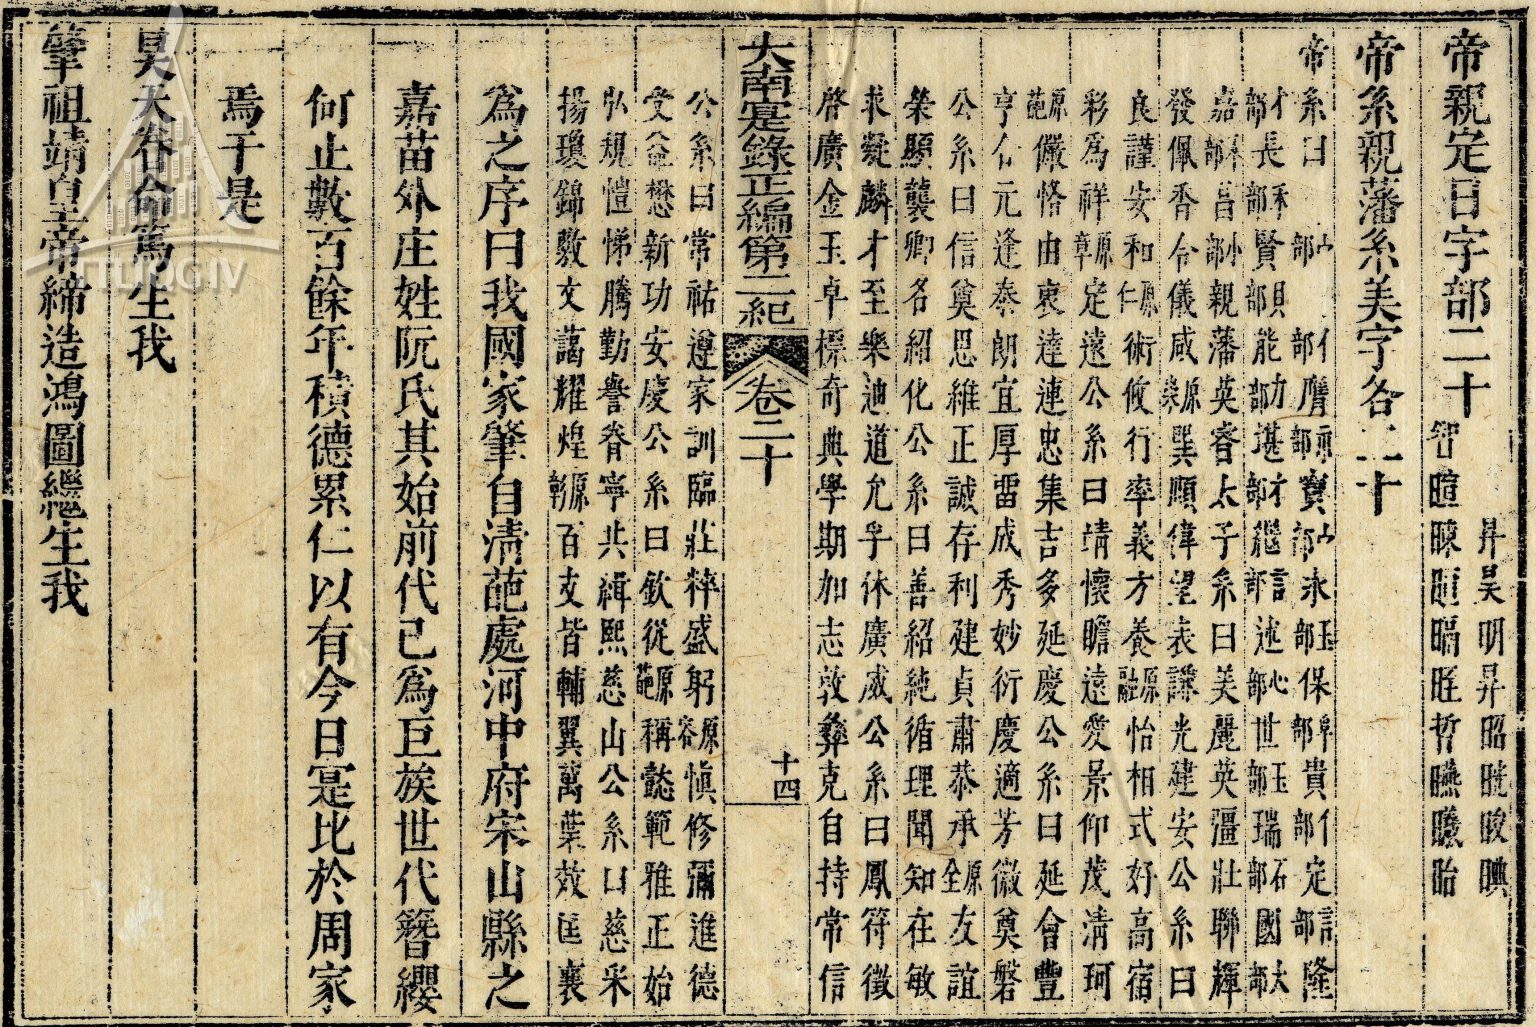 帝親定日字部二十
昇昊明昇昭晄晙晪
智暄暕晅暊暀晢曣曦昑
帝系親藩系美字各二十
帝系曰綿宀部洪亻部膺示部寶山部永玉部保阜部貴亻部定言部隆
扌部長禾部賢貝部能力部堪才部繼言部述心部世玉部瑞石部國大部
嘉禾部昌小部親藩英睿太子系曰美麗英彊壯聯輝
發佩香令儀咸原柒巽順偉望表謙光建安公系曰
良謹安和原仁術攸行率義方養原融怡相式好高宿
彩爲祥原章定遠公系曰靖懷瞻遠愛景仰茂淸珂
原葩儼恪由衷達連忠集吉多延慶公系曰延會豐
亨仚元逢泰朗宜厚畱成秀妙衍慶適芳徽奠磐
公系曰信奠思維正誠存利建貞肅恭承原全友誼
榮顯襲卿名紹化公系曰善紹純循理聞知在敏
求凝麟才至樂迪道允孚休廣威公系曰鳳符徵
啓廣金玉卓標奇典學期加志敦彝克自持常信
大南寔錄正編第二紀 卷二十 十四
公系曰常祐遵家訓臨莊粹盛躬原審愼修彌進德
受益懋新功安慶公系曰欽從原葩稱懿範雅正始
弘規愷悌騰勤譽眷寧共緝熙慈山公系曰慈采
揚瓊錦敷文藹耀煌原彰百支皆輔翼萬葉效匡襄
爲之序曰我國家肇自淸葩處河中府宋山縣之
嘉苗外庄姓阮氏其始前代已爲巨族世代簪纓
何止數百餘年積德累仁以有今日寔比於周家
焉于是
昊天眷命篤生我
肇祖靖皇帝締造鴻圖繼生我